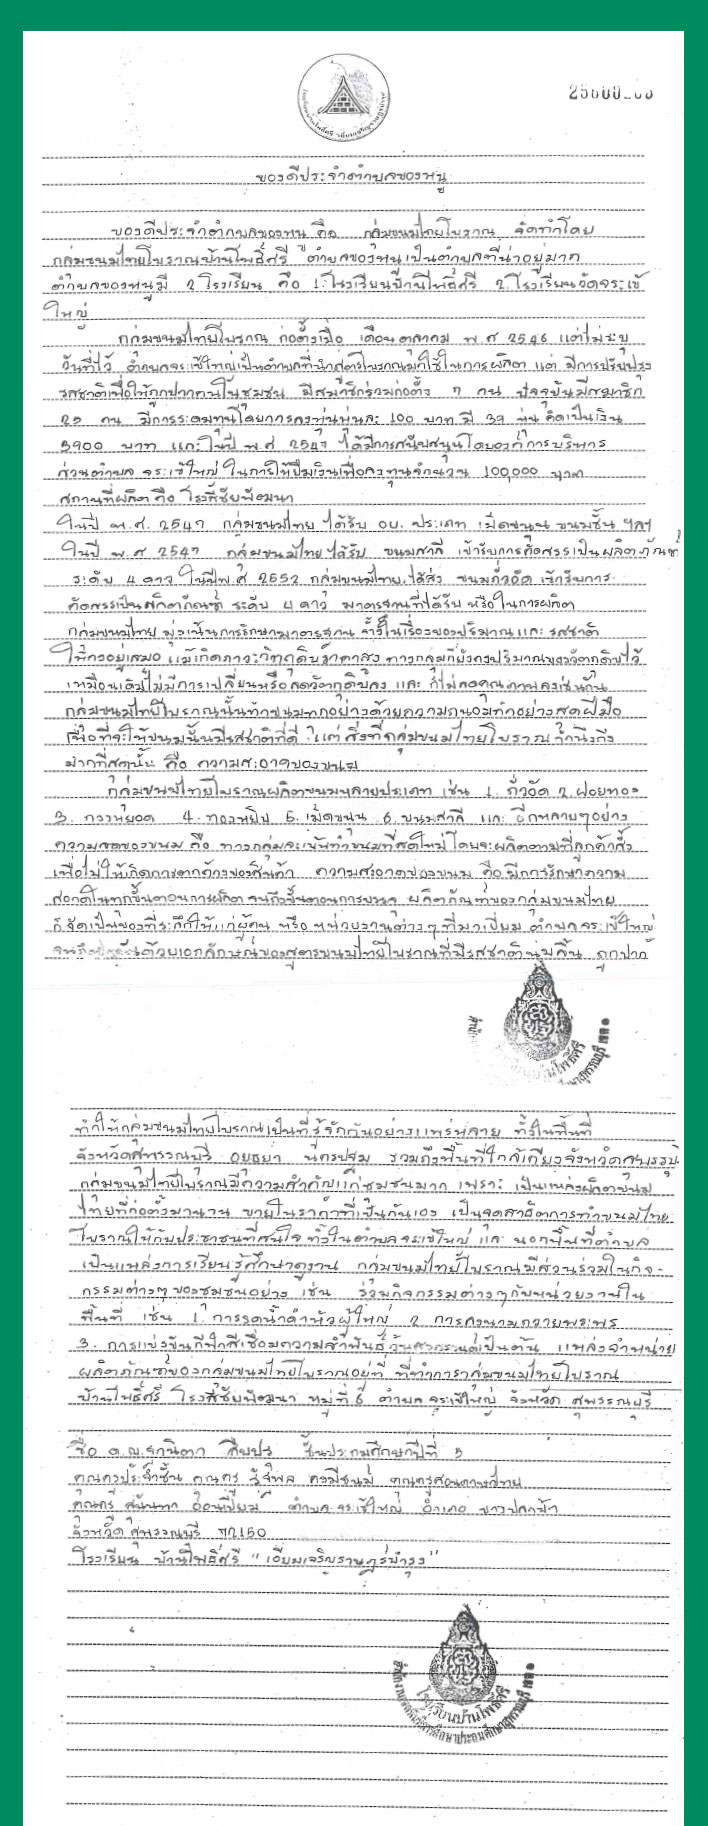 ของดีประจำตำบลของหนู
ของดีประจำตำบลของหนู คือ กลุ่มขนมไทยโบราณ จัดทำโดย
กลุ่มขนมไทยโบราณบ้านโพธิ์ศรี ตำบลของหนูเป็นตำบลที่น่าอยู่มาก
ตำบลของหนูมี 2 โรงเรียน คือ 1.โรงเรียนบ้านโพธิ์ศรี 2.โรงเรียนวัดจระเข้
ใหญ่
กลุ่มขนมไทยโบราณ ก่อตั้งเมื่อ เดือนตุลาคม พ.ศ 2546 แต่ไม่ระบุ
วันที่ไว้ ตำบลจระเข้ใหญ่เป็นตำบลที่นำสูตรโบราณมาใช้ในการผลิต แต่ มีการปรับปรุง
รสชาติเพื่อให้ถูกปากคนในชุมชน มีสมาชิกร่วมก่อตั้ง 7 คน ปัจจุบันมีสมาชิก
25 คน มีการระดมทุนโดยการลงหุ้นหุ้นละ 100 บาท มี 39 หุ้น คิดเป็นเงิน
3900 บาท และในปี พ.ศ 2547 ได้มีการสนับสนุนโดยองค์การบริหาร
ส่วนตำบล จระเข้ใหญ่ ในการให้ยืมเงินเพื่อลงทุนจำนวน 100,000 บาท
สถานที่ผลิตคือ โรงสีชัยพัฒนา
ในปี พ.ศ. 2547 กลุ่มขนมไทย ได้รับ อย. ประเภท เม็ดขนุน ขนมชั้น ฯลฯ
ในปี พ.ศ 2547 กลุ่มขนมไทยได้รับ ขนมสาลี่ เข้ารับการคัดสรรเป็นผลิตภัณฑ์
ระดับ 4 ดาว ในปีพ.ศ 2552 กลุ่มขนมไทยได้ส่ง ขนมถั่วอัด เข้ารับการ
คัดสรรเป็นผลิตภัณฑ์ ระดับ 4 ดาว มาตรฐานที่ได้รับ หรือในการผลิต
กลุ่มขนมไทย มุ่งเน้นการรักษามาตรฐาน ทั้งในเรื่องของปริมาณและ รสชาติ
ให้คงอยู่เสมอ แม้เกิดภาวะวัตถุดิบราคาสูง ทางกลุ่มก็ยังคงปริมาณของวัตถุดิบไว้
เหมือนเดิมไม่มีการเปลี่ยนหรือลดวัตถุดิบลง และ ก็ไม่ลดคุณภาพลงเช่นกัน
กลุ่มขนมไทยโบราณนั้นทำขนมทุกอย่างด้วยความถนอมทำอย่างสุดฝีมือ
เพื่อที่จะให้ขนมนั้นมีรสชาติที่ดี แต่ สิ่งที่กลุ่มขนมไทยโบราณ คำนึงถึง
มากที่สุดนั้น คือ ความสะอาดของขนม
กลุ่มขนมไทยโบราณผลิตขนมหลายประเภท เช่น 1. ถั่วอัด 2.ฝอยทอง
3. ทองหยอด 4. ทองหยิบ 5. เม็ดขนุน 6.ขนมสาลี่ และ อีกหลายๆอย่าง
ความสดของขนม คือ ทางกลุ่มจะเน้นทำขนมที่สดใหม่ โดยจะผลิตตามที่ลูกค้าสั่ง
เพื่อไม่ให้เกิดการตกค้างของสินค้า ความสะอาดของขนม คือ มีการรักษาความ
สะอาดในทุกขั้นตอนการผลิต จนถึงขั้นตอนการบรรจุ ผลิตภัณฑ์ของกลุ่มขนมไทย
ก็จัดเป็นของที่ระลึกให้แก่ผู้คน หรือ หน่วยงานต่างๆที่มาเยี่ยม ตำบลจระเข้ใหญ่
ด้วยเอกลักษณ์ของสูตรขนมไทยโบราณที่มีรสชาตินุ่มลิ้น ถูกปาก
ทำให้กลุ่มขนมไทยโบราณเป็นที่รู้จักกันอย่างแพร่หลาย ทั้งในพื้นที่
จังหวัดสุพรรณบุรี อยุธยา นครปฐม รวมถึงพื้นที่ใกล้เคียงจังหวัดสุพรรณบุรี
กลุ่มขนมไทยโบราณมีความสำคัญแก่ชุมชนมาก เพราะ เป็นแหล่งผลิตขนม
ไทยที่ก่อตั้งมานาน ขายในราคาที่เป็นกันเอง เป็นจุดสาธิตการทำขนมไทย
โบราณให้กับประชาชนที่สนใจ ทั้งในตำบลจระเข้ใหญ่ และ นอกพื้นที่ตำบล
เป็นแหล่งการเรียนรู้ศึกษาดูงาน กลุ่มขนมไทยโบราณมีส่วนร่วมในกิจ-
กรรมต่างๆของชุมชนอย่าง เช่น ร่วมกิจกรรมต่างๆกับหน่วยงานใน
พื้นที่ เช่น 1. การรดน้ำดำหัวผู้ใหญ่ 2. การลงนามถวายพระพร
3. การแข่งขันกีฬาสีเชื่อมความสัมพันธ์วันสงกรานต์เป็นต้น แหล่งจำหน่าย
ผลิตภัณฑ์ของกลุ่มขนมไทยโบราณอยู่ที่ ที่ทำการกลุ่มขนมไทยโบราณ
บ้านโพธิ์ศรี โรงสีชัยพัฒนา หมู่ที่ 6 ตำบล จระเข้ใหญ่ จังหวัด สุพรรณบุรี
ชื่อ ด.ญ. ชั้นประถมศึกษาปีที่ 5
คุณครูประจำชั้น คุณครู คงมีชนม์ คุณครูสอนภาษาไทย
คุณครู สุนันทา อ่อนเปี่ยม ตำบล จระเข้ใหญ่ อำเภอ บางปลาม้า
จังหวัด สุพรรณบุรี 72150
โรงเรียน บ้านโพธิ์ศรี "เอี่ยมเจริญราษฎร์บำรุง"
โรงเรียนบ้านโพธิ์ศรี
สำนักงานเขตพื้นที่การศึกษาประถมศึกษาสุพรรณบุรี เขต ๑